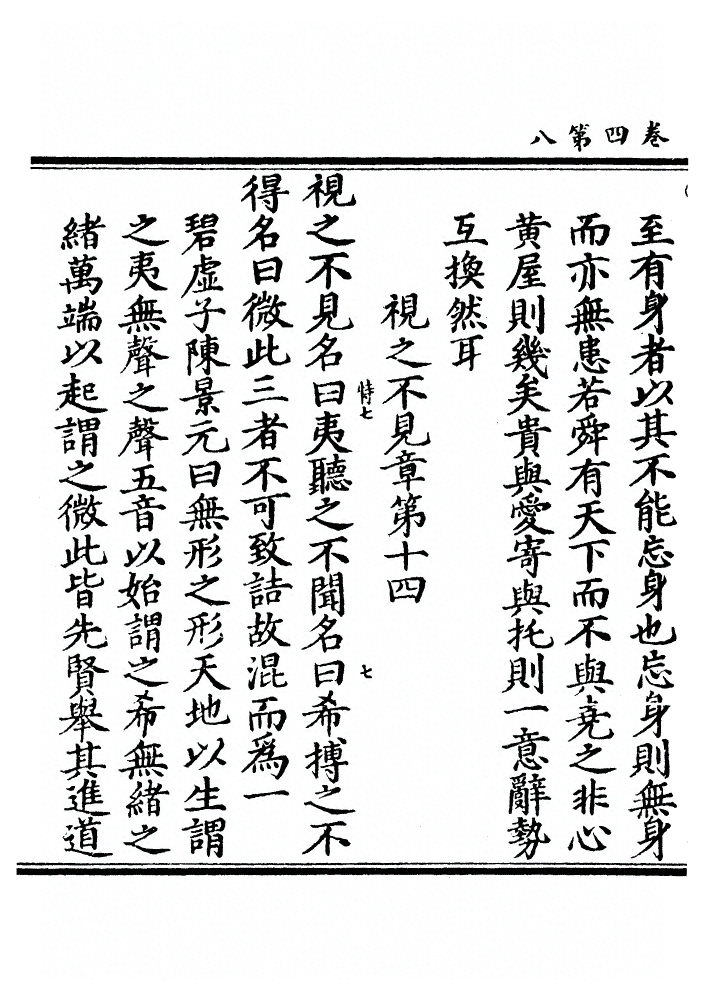 卷四第八
至有身者以其不能忘身也忘身則無身
而亦無患若舜有天下而不與堯之非心
黄屋則幾矣貴與愛寄與托則一意辭勢
互換然耳
視之不見章第十四
視之不見名曰夷聽之不聞名曰希搏之不
恃七
七
得名曰微此三者不可致詰故混而爲一
碧虛子陳景元曰無形之形天地以生謂
之夷無聲之聲五音以始謂之希無緒之
緒萬端以起謂之微此皆先賢舉其進道